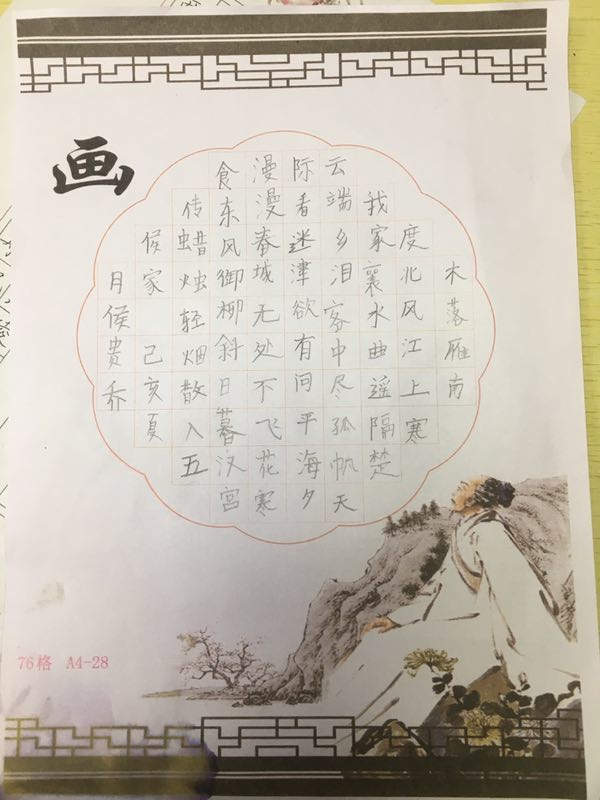 画
木落雁南
度北风江上寒
我家襄水曲遥隔楚
云端乡泪客中尽孤帆天
际看迷津欲有间平海夕
漫漫春城无处不飞花寒
食东风御柳斜日暮汉宫
传蜡烛轻烟散入五
侯家 己亥夏
月侯贵乔
76格 A4-28